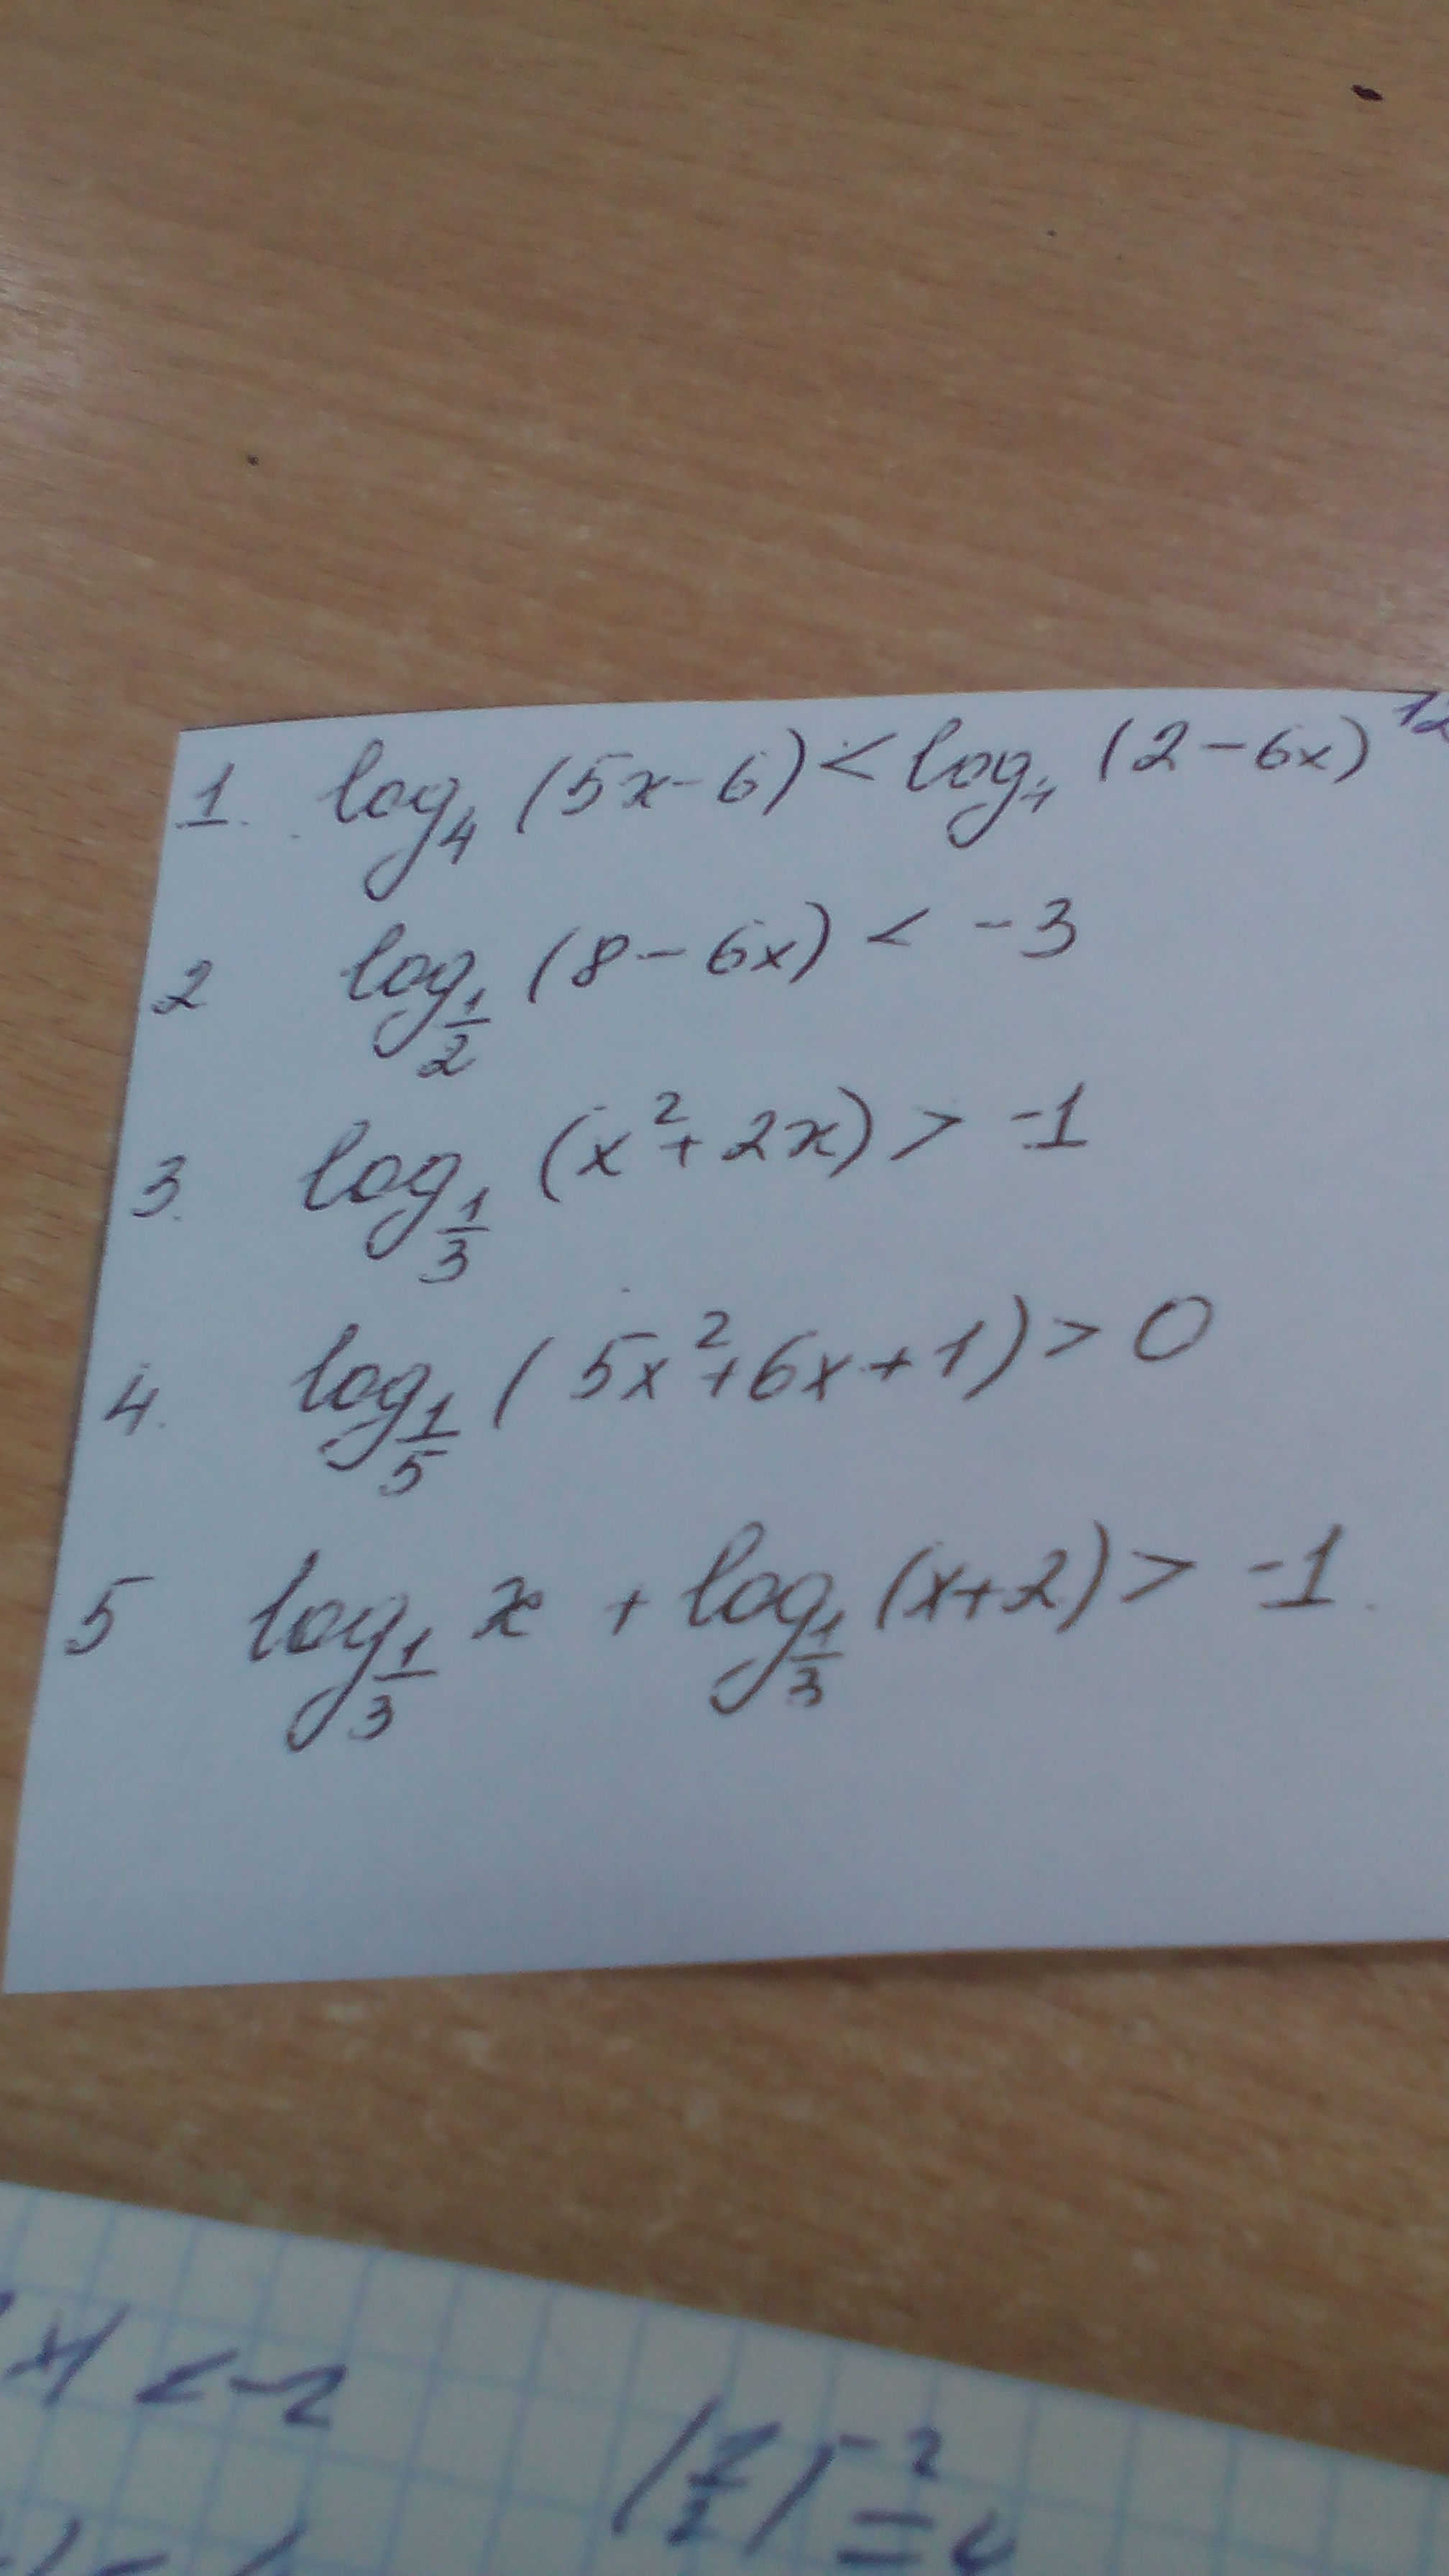 12
1. log₄ (5x-6) < log₄ (2-6x)
2 log_{1/2} (8-6x) < -3
3. log_{1/3} (x²+2x) > -1
4. log_{1/5} (5x²+6x+1) > 0
5 log_{1/3} x + log_{1/3} (x+2) > -1.
x) < -2